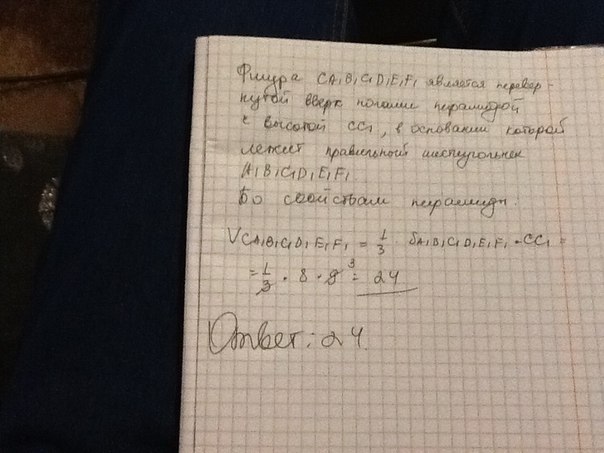 Фигура CA₁B₁C₁D₁E₁F₁ является перевер-
нутой вверх ногами пирамидой
с высотой CC₁, в основании которой
лежит правильный шестиугольник
A₁B₁C₁D₁E₁F₁
По свойствам пирамиды:
VCA₁B₁C₁D₁E₁F₁ = 1/3 · SA₁B₁C₁D₁E₁F₁ · CC₁ =
= 1/3 · 8 · 9³ = 24
Ответ: 24.